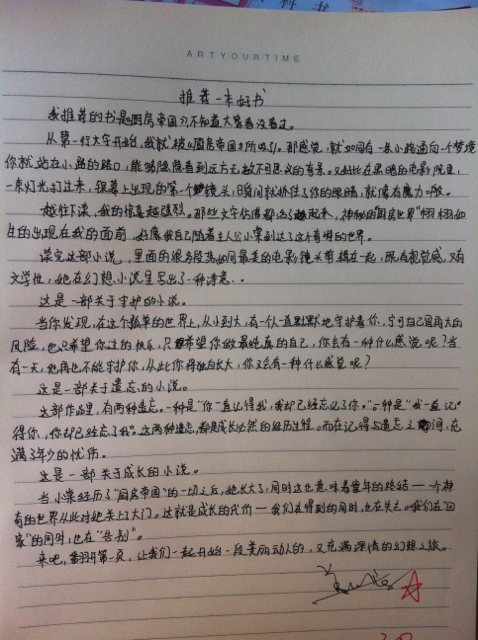 科 书
ARTYOURTIME
推荐一本好书
我推荐的书是《厨房帝国》,不知道大家看没看过。
从第一行文字开始,我就被《厨房帝国》所吸引。那感觉,就如同有一条小路通向一个梦境
你就站在小路的路口,能够隐隐看到远方无数不可思议的奇景。又好比在黑暗的电影院里,
一束灯光打过来,银幕上出现的第一个镜头,瞬间就抓住了你的眼睛,就像有魔力一般。
越往下读,我的惊喜越强烈。那些文字仿佛都活了起来,神秘的厨房世界栩栩如
生的出现在我的面前,好像我自己随着主人公小棠到达了这个奇特的世界。
读完这部小说,里面的很多段落如同最美的电影镜头剪辑在一起,既有视觉感,又有
文学性,她在幻想小说里写出了一种诗意..
这是一部关于守护的小说。
当你发现,在这个孤单的世界上,从小到大,有一个人一直默默地守护着你,宁可自己冒再大的
风险,也只希望你过的快乐,只希望你做最纯真的自己,你会有一种什么感觉呢?当
有一天,他再也不能守护你,从此你将独自长大,你又会有一种什么感觉呢?
这是一部关于遗忘的小说。
这部作品里,有两种遗忘。一种是"你一直记得我,我却已经忘记了你。"另一种是"我一直记
得你,你却已经忘了我"。这两种遗忘,都是成长必然的经历过程。而在记得与遗忘之间,充
满了年少的忧伤。
这是一部关于成长的小说。
当小棠经历了"厨房帝国"的一切之后,她长大了,同时这也意味着童年的终结——一个神
奇的世界从此对她关上了大门。这就是成长的代价——我们在得到的同时,也在失去。我们在"回
家"的同时,也在"告别"。
来吧,翻开第一页,让我们一起开始一段美丽动人的,又充满深情的幻想之旅。